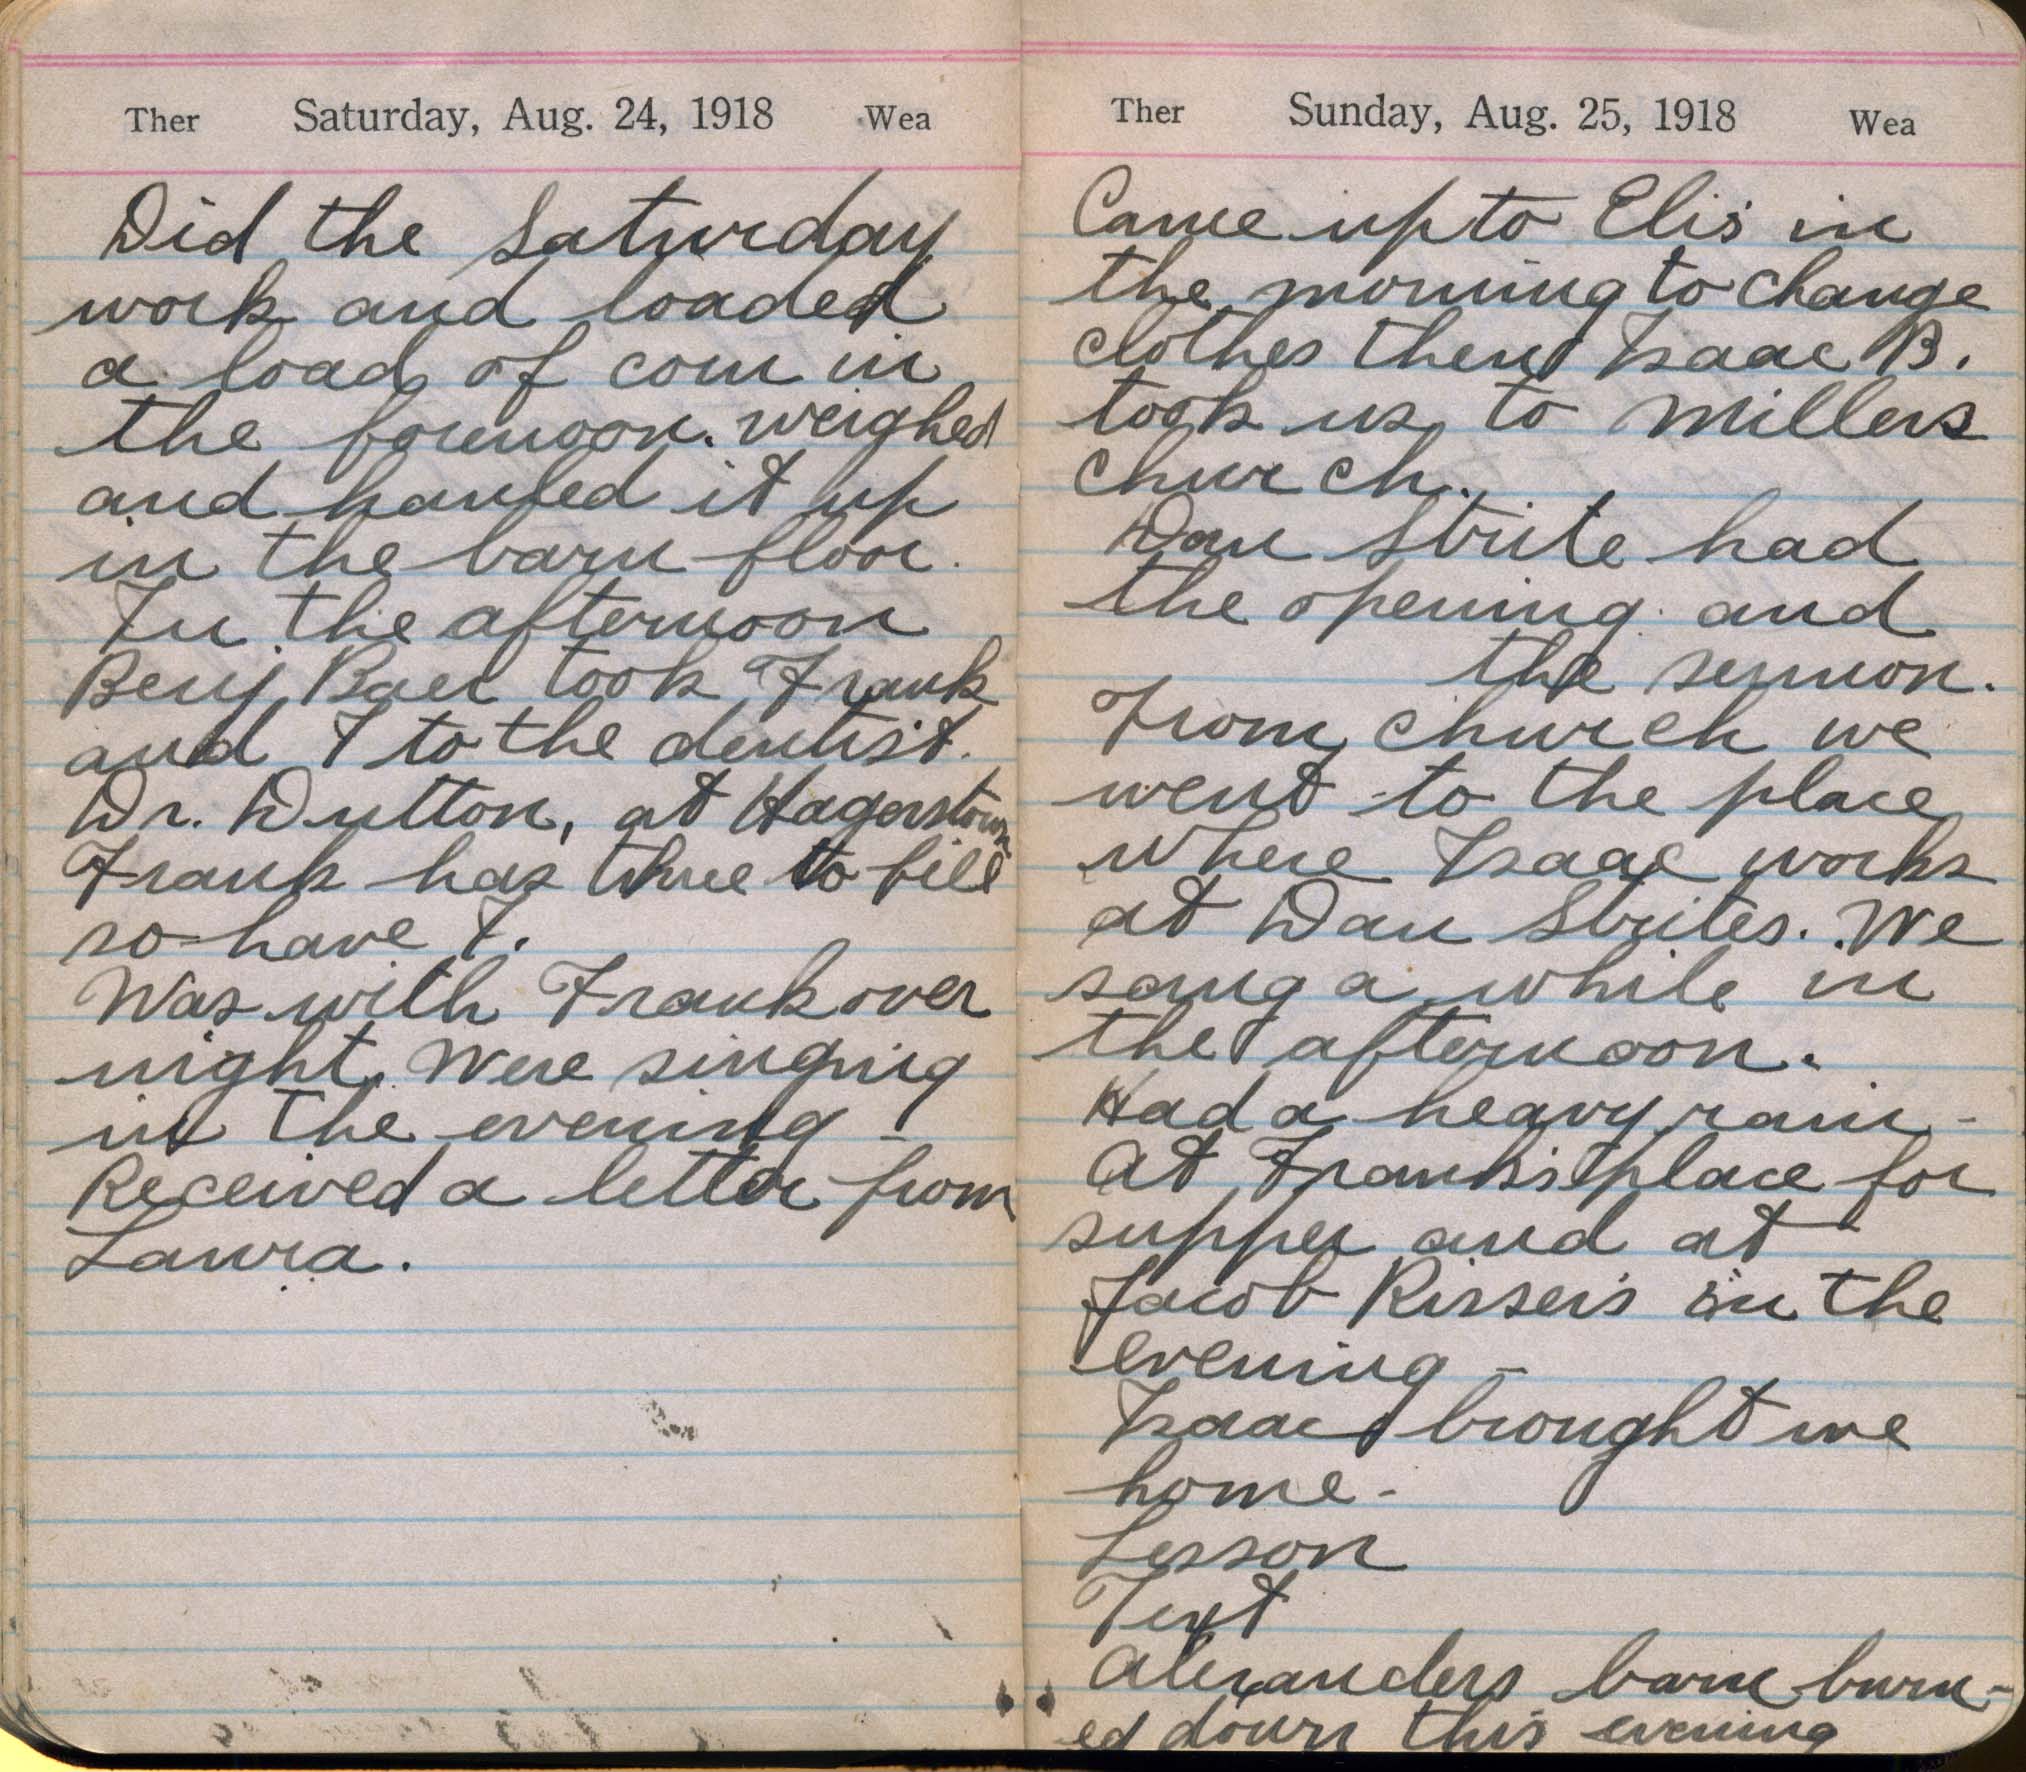 Ther Saturday, Aug. 24, 1918 Wea
Did the Saturday
work and loaded
a load of corn in
the forenoon. weighed
and hauled it up
in the barn floor.
In the afternoon
Benj Baer took Frank
and I to the dentist.
Dr. Dutton, at Hagerstown
Frank has three to fill
so have I.
Was with Frank over
night. Were singing
in the evening -
Received a letter from
Laura.
Ther Sunday, Aug. 25, 1918 Wea
Came up to Eli's in
the morning to change
clothes then Isaac B.
took us to Millers
church.
Dan Strite had
the opening and
the sermon.
From church we
went to the place
where Isaac works
at Dan Strites. We
sang a while in
the afternoon.
Had a heavy rain -
At Frank's place for
supper and at
Jacob Risser's in the
evening -
Isaac brought me
home -
Lesson
Text
Alexanders barn burn-
ed down this evening